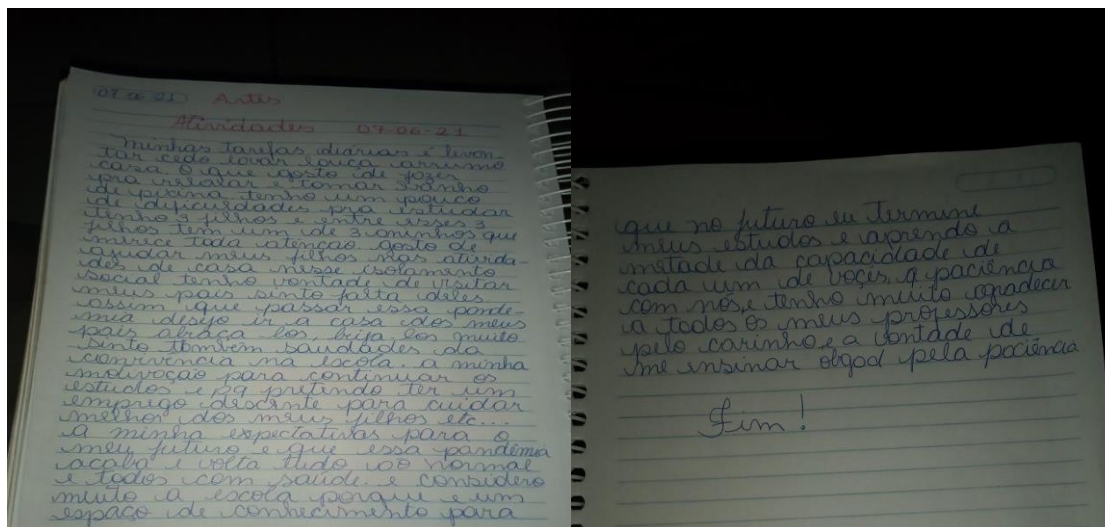 07-06-21 Artes
Atividades 07-06-21
Minhas tarefas diarias é levan-
tar cedo lavar louça arrumo
casa o que gosto de fazer
pra relaxar e tomar banho
de pixina tenho um pouco
de dificuldades pra estudar
tenho 3 filhos e entre esses 3
filhos tem um de 3 aninhos que
merece toda atenção gosto de
ajudar meus filhos nas ativida-
des de casa nesse isolamento
social tenho vontade de visitar
meus pais sinto falta deles
assim que passar essa pande-
mia desejo ir a casa dos meus
pais abraça los, beija los muito
sinto também saudades da
convivência na escola. a minha
motivação para continuar os
estudos e pq pretindo ter um
emprego descente para cuidar
melhor dos meus filhos etc...
a minha expectativas para o
meu futuro e que essa pandêmia
acaba e volta tudo ao normal
e todos com saúde. e considero
muito a escola porque e um
espaço de conhecimento para
que no futuro eu termine
meus estudos e aprendo a
metade da capacidade de
cada um de voçês, q paciência
com nós, e tenho muito agradecer
a todos os meus professores
pelo carinho e a vontade de
me ensinar obgod pela paciência
Fim!